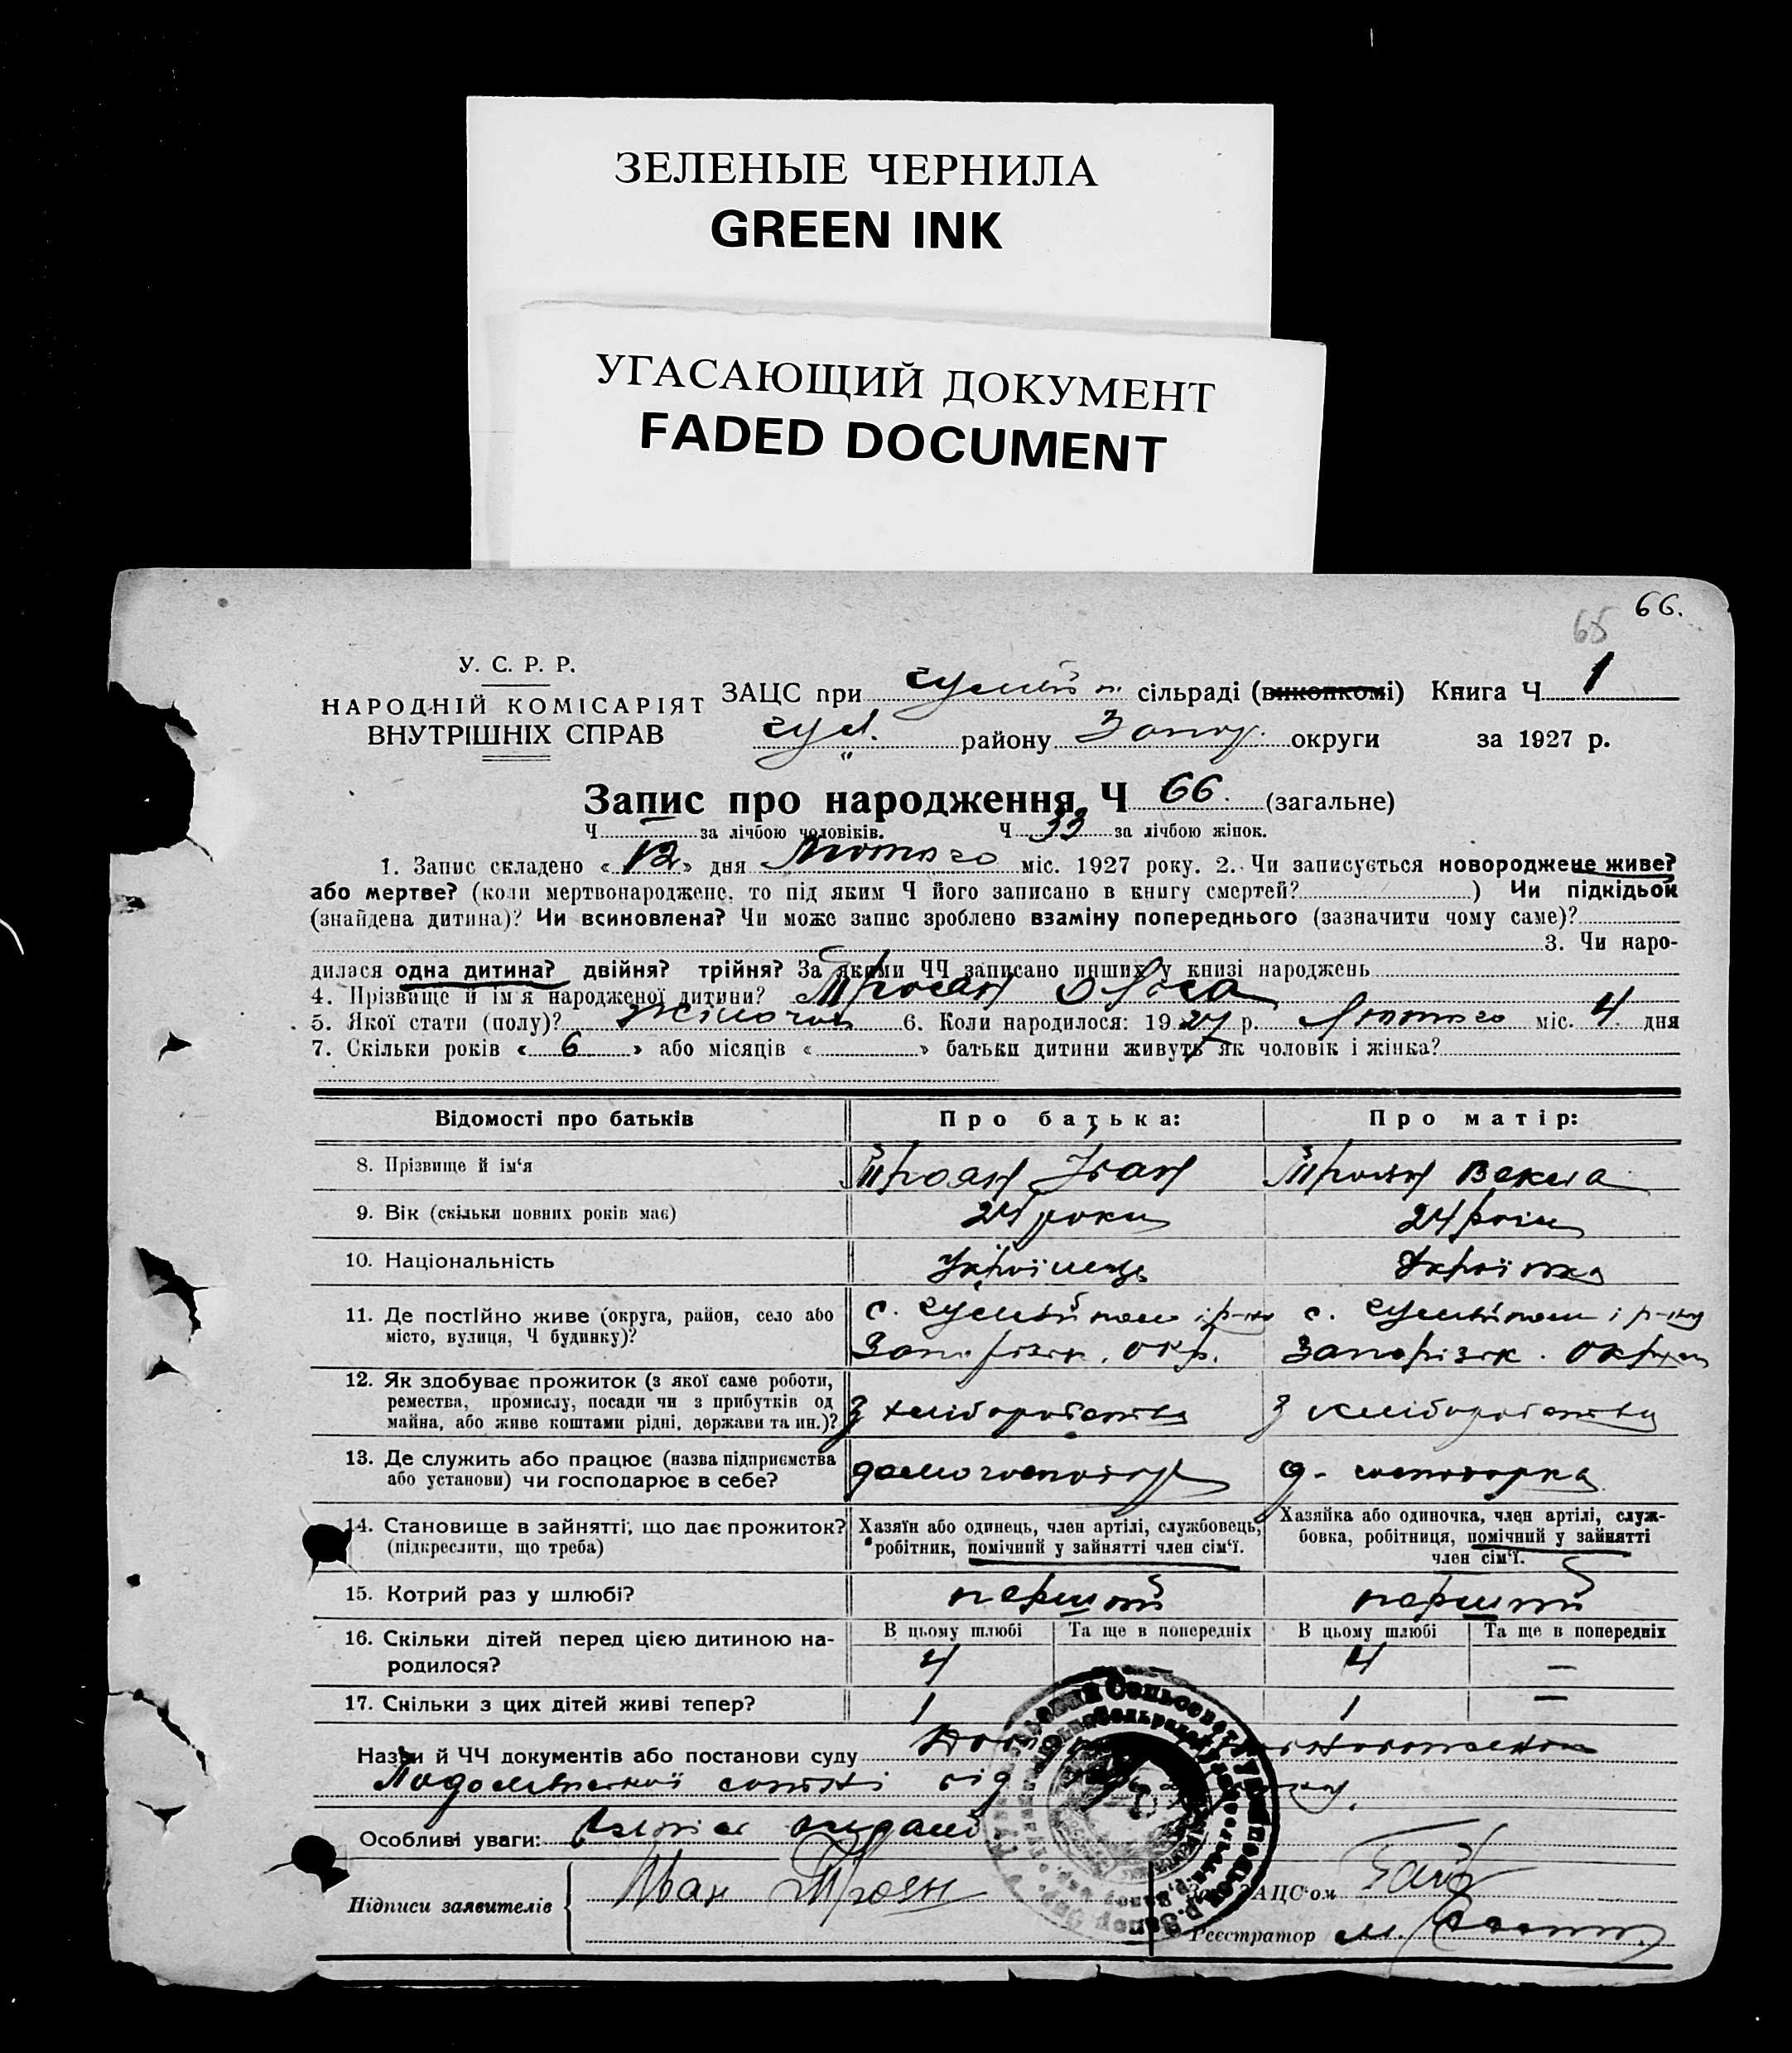 ЗЕЛЕНЫЕ ЧЕРНИЛА
GREEN INK
УГАСАЮЩИЙ ДОКУМЕНТ
FADED DOCUMENT
66.
65
У. С. Р. Р.
НАРОДНІЙ КОМІСАРІЯТ
ВНУТРІШНІХ СПРАВ
ЗАЦС при сільраді (виконкомі) Книга Ч 1
району Запор. округи за 1927 р.
Запис про народження Ч 66. (загальне)
Ч за лічбою чоловіків. Ч 33 за лічбою жінок.
1. Запис складено «12» дня Лютого міс. 1927 року. 2. Чи записується новороджене живе?
або мертве? (коли мертвонароджене, то під яким Ч його записано в книгу смертей? ) Чи підкідьок
(знайдена дитина)? Чи всиновлена? Чи може запис зроблено взаміну попереднього (зазначити чому саме)?
3. Чи наро-
дилася одна дитина? двійня? трійня? За якими ЧЧ записано инших у книзі народжень
4. Прізвище й ім'я народженої дитини? Троян
5. Якої стати (полу)? жіночої 6. Коли народилося: 1927 р. Лютого міс. 4. дня
7. Скільки років «6» або місяців « » батьки дитини живуть як чоловік і жінка?
Відомості про батьків Про батька: Про матір:
8. Прізвище й ім'я Троян Іван Троян Векла
9. Вік (скільки повних років має) 24 роки 24 роки
10. Національність Українець Українка
11. Де постійно живе (округа, район, село або
місто, вулиця, Ч будинку)?
с. Гуляйполе і р-ну с. Гуляйполе і р-ну
Запорізк. окр. Запорізк. округи
12. Як здобуває прожиток (з якої саме роботи,
ремества, промислу, посади чи з прибутків од
майна, або живе коштами рідні, держави та ин.)?
з хліборобства з хліборобства
13. Де служить або працює (назва підприємства
або установи) чи господарює в себе?
домогосподар д. господарка
14. Становище в зайнятті, що дає прожиток?
(підкреслити, що треба)
Хазяїн або одинець, член артілі, службовець,
робітник, помічний у зайнятті член сім'ї.
Хазяйка або одиночка, член артілі, служ-
бовка, робітниця, помічний у зайнятті
член сім'ї.
15. Котрий раз у шлюбі? перший перший
16. Скільки дітей перед цією дитиною на-
родилося?
В цьому шлюбі Та ще в попередніх В цьому шлюбі Та ще в попередніх
4 4 —
17. Скільки з цих дітей живі тепер? 1 1 —
Назви й ЧЧ документів або постанови суду
від
Особливі уваги:
Підписи заявителів Іван Троян
Зав. ЗАЦС'ом
Реєстратор